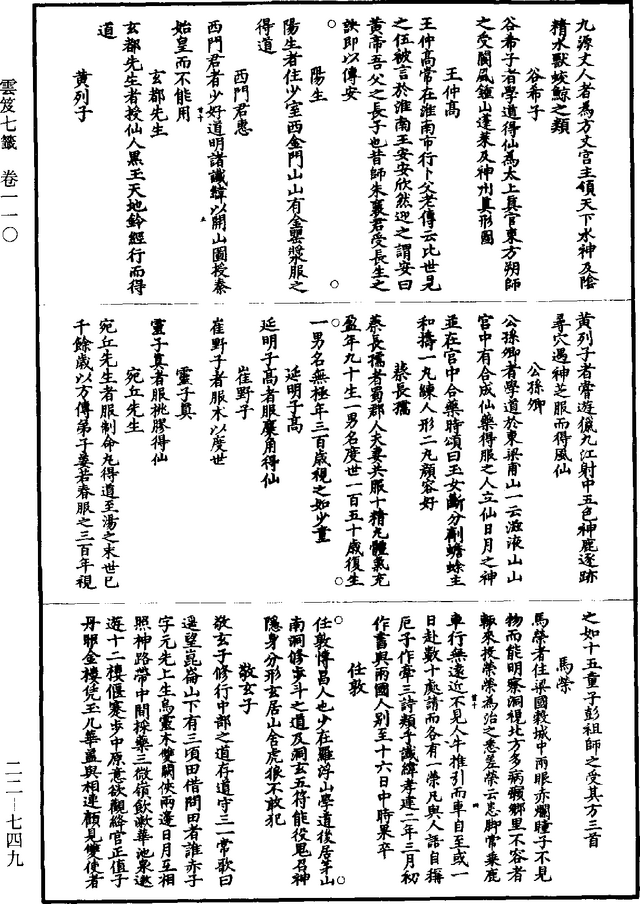 九源丈人者為方丈宮主領天下水神及陰
精水獸蛟鯨之類
谷希子
谷希子者學道得仙為太上真官東方朔師
之受閬風鍾山蓬萊及神州真形圖
王仲高
王仲高常在淮南市行卜父老傳云比世見
之伍被言於淮南王安安欣然迎之謂安曰
黃帝吾父之長子也昔師朱襄君受長生之
訣即以傳安
陽生
陽生者住少室西金門山山有金罌漿服之
得道
西門君惠
西門君者少好道明諸讖緯以開山圖授秦
始皇而不能用
玄都先生
玄都先生者授仙人黑玉天地鈐經行而得
道
黃列子
黃列子者嘗遊獵九江射中五色神鹿逐跡
尋穴遇神芝服而得風仙
公孫卿
公孫卿者學道於東梁甫山一云滋液山山
宮中有合成仙藥得服之人立仙日月之神
並在宮中合藥時頌曰玉女斷分劑蟾蜍主
和擣一丸練人形二丸顏容好
蔡長孺
蔡長孺者蜀郡人夫妻共服十精丸體氣充
盈年九十生一男名度世一百五十歲復生
一男名無極年三百歲視之如少童
延明子高
延明子高者服麋角得仙
崔野子
崔野子者服朮以度世
靈子真
靈子真者服桃膠得仙
宛丘先生
宛丘先生者服制命丸得道至湯之末世已
千餘歲以方傳弟子姜若春服之三百年視
之如十五童子彭祖師之受其方三首
馬榮
馬榮者住梁國穀城中兩眼赤爛瞳子不見
物而能明察洞視北方多病癩鄉里不容者
輒來投榮榮為治之悉差榮云患腳常乘鹿
車行無遠近不見人牛推引而車自至或一
日赴數十處請而各有一榮凡與人語自稱
厄子作牽三詩類乎讖緯孝建二年三月初
作書與兩國人別至十六日中時果卒
任敦
任敦博昌人也少在羅浮山學道後居茅山
南洞修步斗之道及洞玄五符能役鬼召神
隱身分形玄居山舍虎狼不敢犯
敬玄子
敬玄子修行中部之道存道守三一常歌曰
遥望崑崙山下有三頃田借問田者誰赤子
字元先上生烏靈木雙闕俠兩邊日月互相
照神路帶中間採藥三微嶺飲漱華池泉遨
遊十二樓偃蹇步中原意欲觀絳宮正值子
丹眠金樓凭玉几華蓋與相連顧見雙使者
雲笈七籤　卷一一〇
二二—七四九